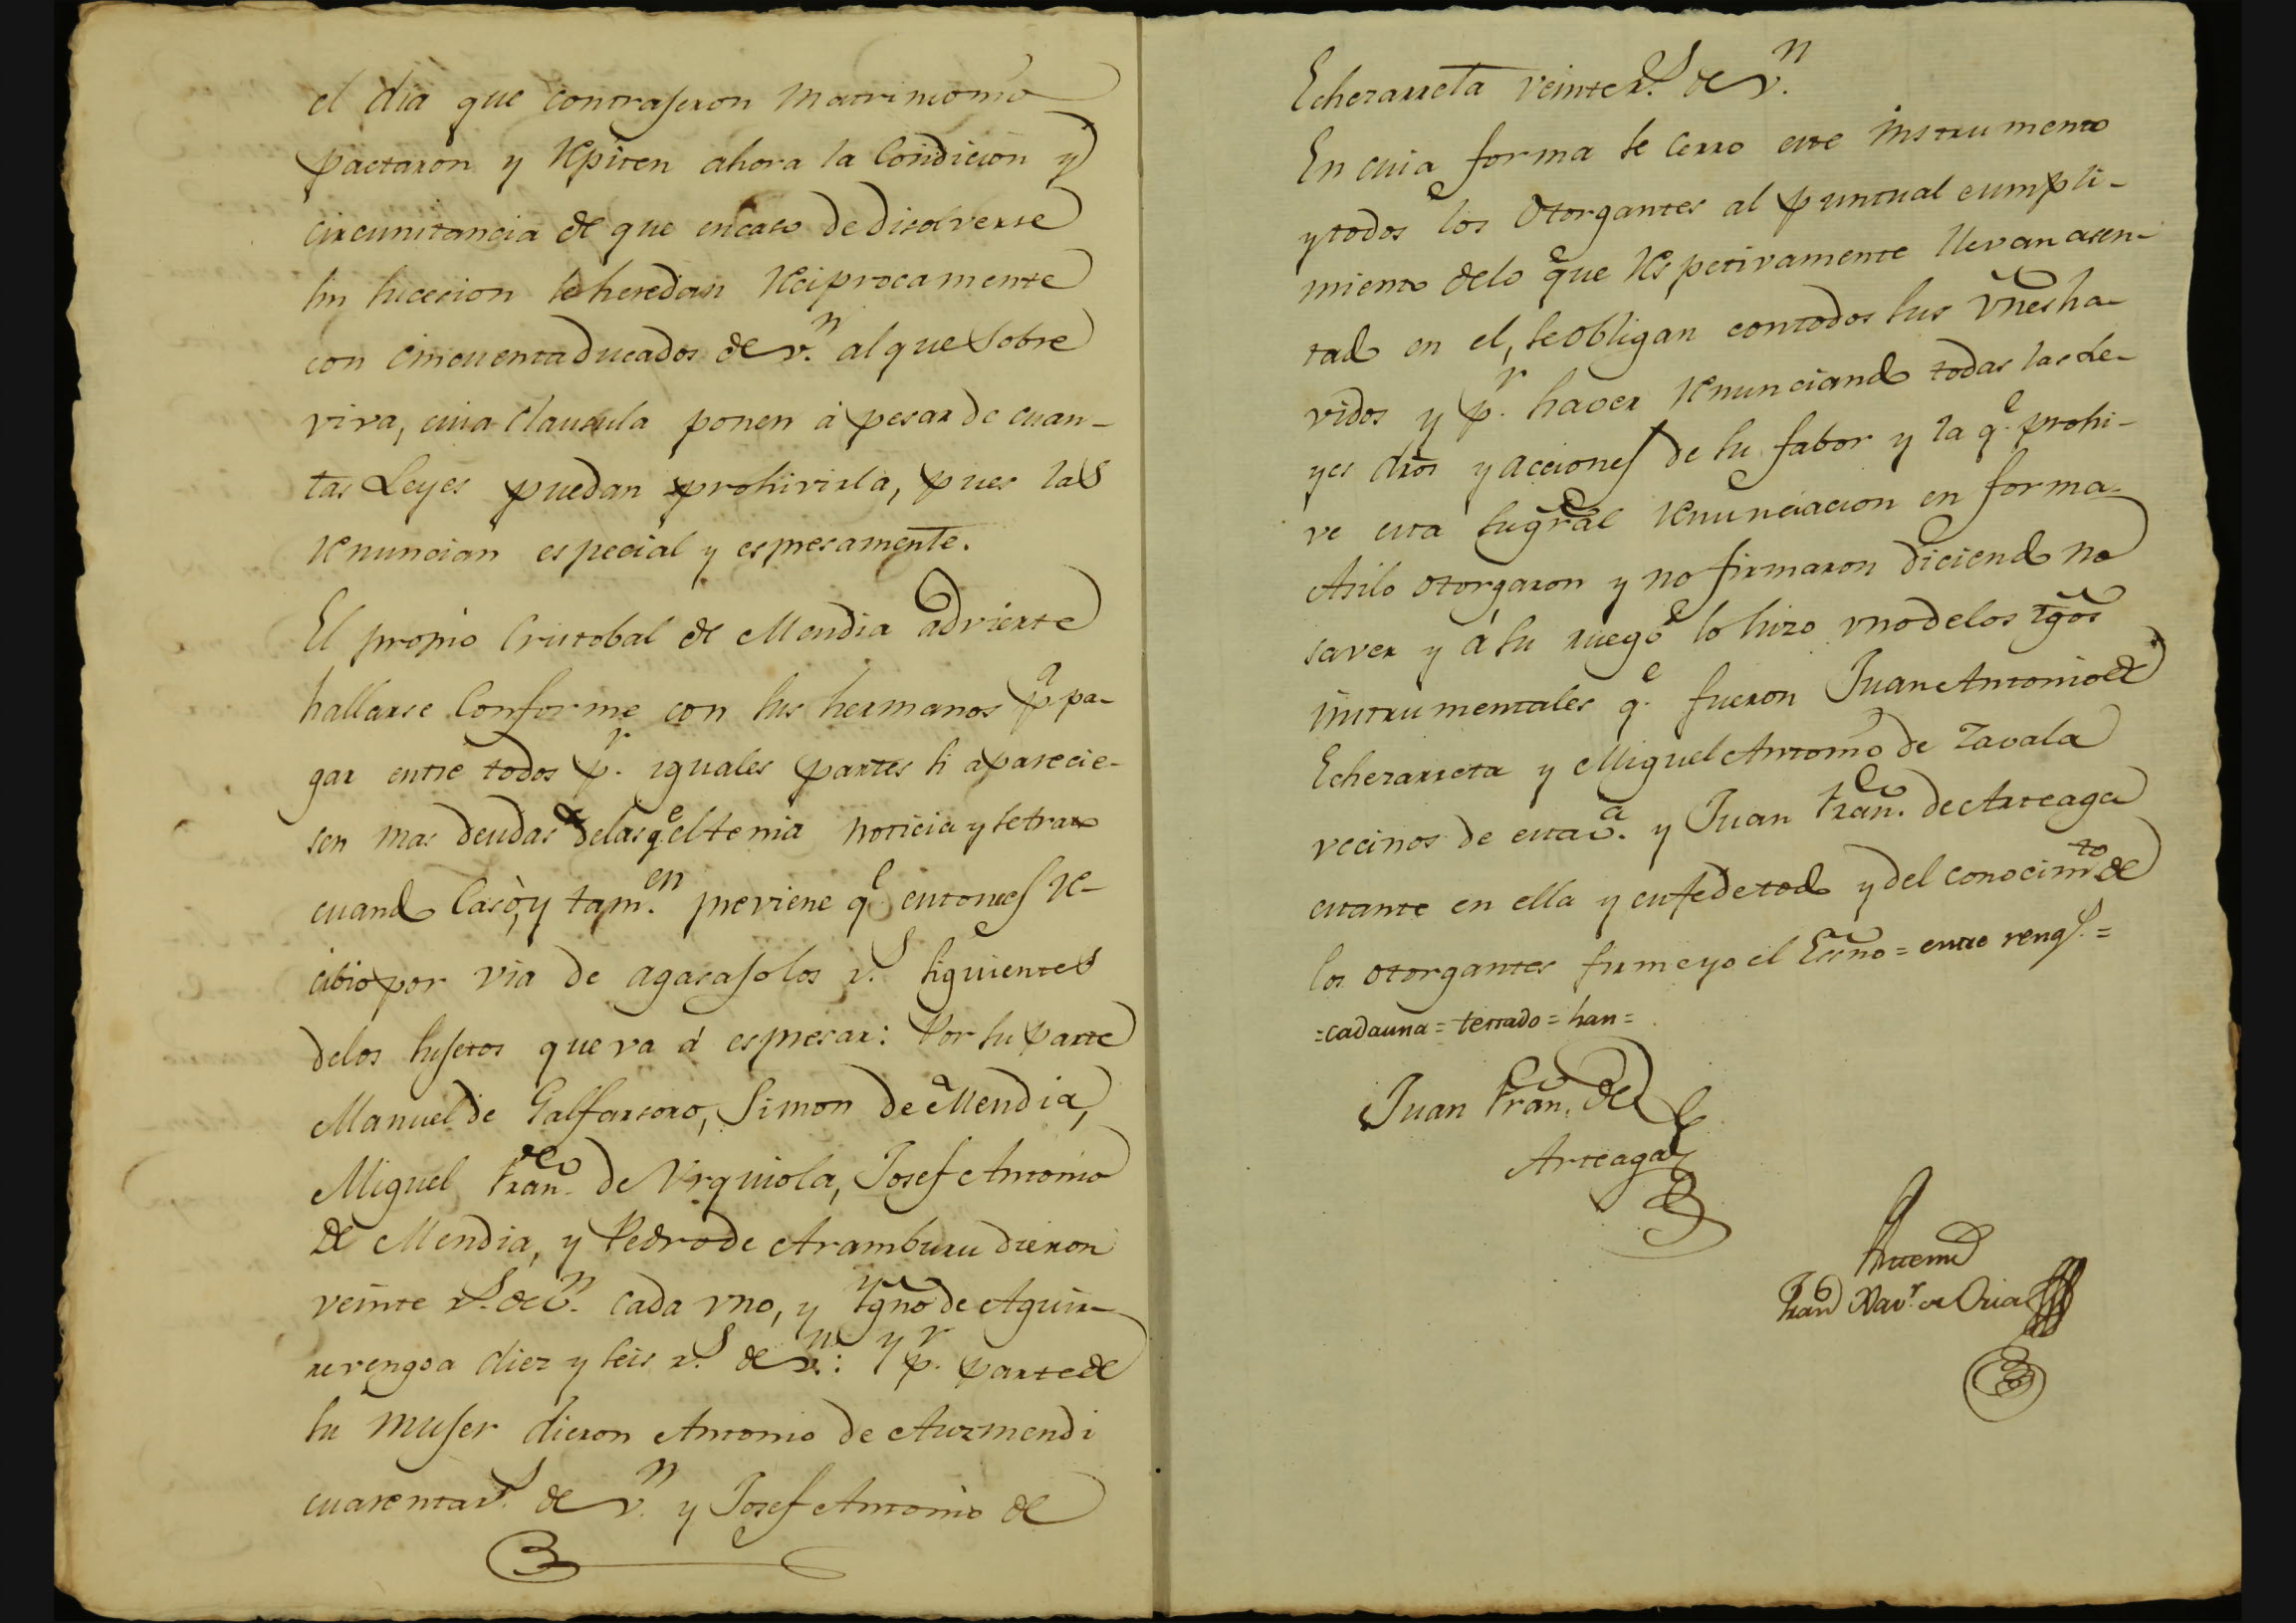 el dia que contrajeron Matrimonio
pactaron y Repiten ahora la Condicion y
circunstancia de que encaso de disolverse
sin sucecion se heredan Reciprocamente
con cincuenta ducados de v.n al que Sobre
viva, cuia clausula ponen á pesar de cuan-
tas Leyes puedan prohivirla, pues las
Renuncian especial y espresamente.
El propio Cristobal de Mendia advierte
hallarse Conforme con sus hermanos p.a pa-
gar entre todos p.r iguales partes si aparecie-
sen mas deudas delas q.e el tenia noticia y se trato
cuando Casó, y tam.en previene q.e entonces Re-
cibio por via de agasajo los r.s siguientes
delos sujetos que va á espresar: Por su parte
Manuel de Galfarsoro, Simon de Mendia,
Miguel Fran.co de Urquiola, Josef Antonio
de Mendia, y Pedro de Aramburu dieron
veinte r.s de v.n cada uno, y Ygno de Aguir-
revengoa diez y seis r.s de v.n: y p.r parte de
su Mujer dieron Antonio de Auzmendi
cuarenta r.s de v.n y Josef Antonio de
Echezarreta veinte r.s de v.n
En cuia forma se Cerro este instrumento
y todos los Otorgantes al puntual cumpli-
miento delo que Respetivamente llevan asen-
tado en el, se obligan con todos sus vnes ha-
vidos y p.r haver Renunciando todas las Le-
yes dros y acciones de su fabor y la q.e prohi-
ve esta su gral Renunciacion en forma.
Asilo otorgaron y no firmaron diciendo no
saver y á su ruego lo hizo uno delos tgos
instrumentales q.e fueron Juan Antonio de
Echezarreta y Miguel Antonio de Zavala
vecinos de esta v.a y Juan Fran.co de Arteaga
estante en ella y en fe de todo y del conocim.to de
los otorgantes firme yo el Essno = entre reng.s =
= cada una = terrado = han =
Juan Fran.co de
Arteaga
Antemi
Fran.co Xav.r de Oria